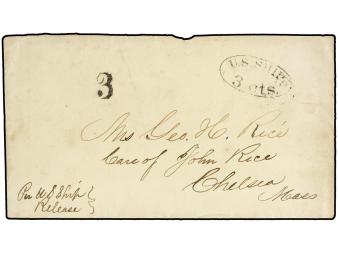 3
U.S. SHIP
3 cts.
Mrs Geo. H. Rice
Care of John Rice
Chelsea
Mass
Per U S Ship
Release